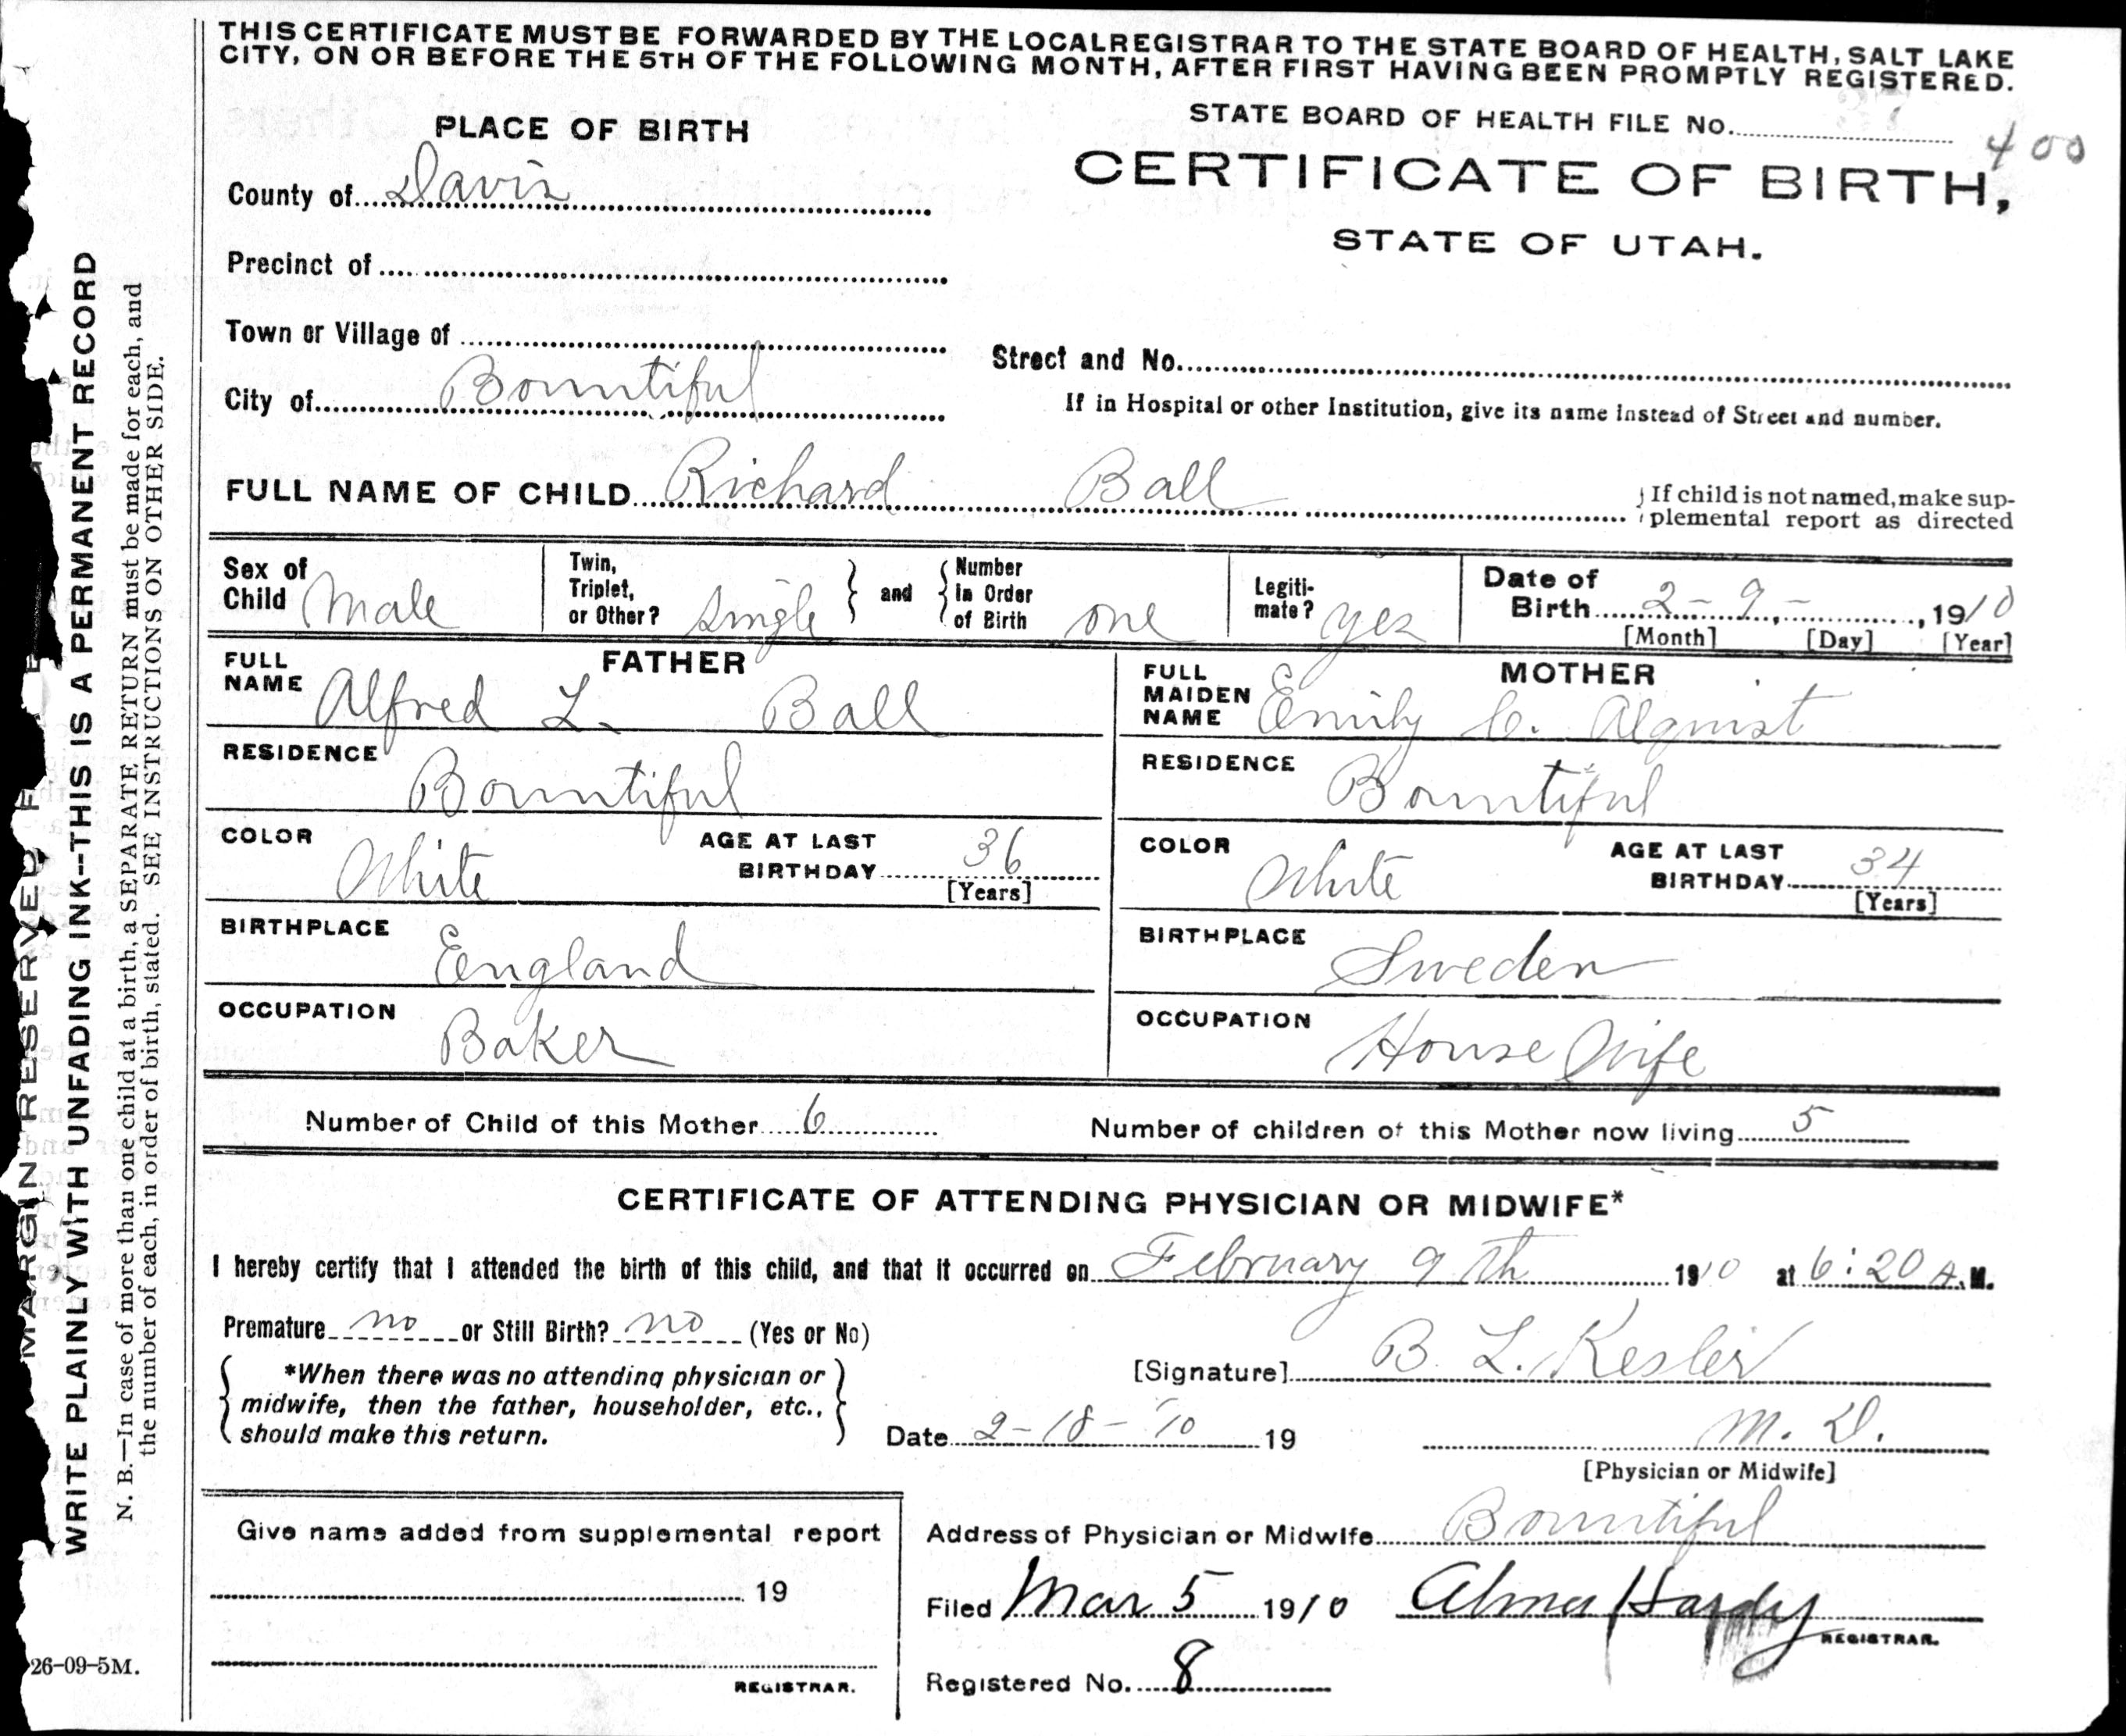 THIS CERTIFICATE MUST BE FORWARDED BY THE LOCAL REGISTRAR TO THE STATE BOARD OF HEALTH, SALT LAKE
CITY, ON OR BEFORE THE 5TH OF THE FOLLOWING MONTH, AFTER FIRST HAVING BEEN PROMPTLY REGISTERED.
STATE BOARD OF HEALTH FILE No. 400
CERTIFICATE OF BIRTH,
STATE OF UTAH.
PLACE OF BIRTH
County of Davis
Precinct of
Town or Village of
City of Bountiful
Street and No.
If in Hospital or other Institution, give its name instead of Street and number.
FULL NAME OF CHILD Richard Ball
If child is not named, make sup-
plemental report as directed
Sex of Child Male
Twin, Triplet, or Other? single
and
Number In Order of Birth one
Legiti-mate? yes
Date of Birth 2-9-, 1910
[Month] [Day] [Year]
FATHER
FULL NAME Alfred L. Ball
RESIDENCE Bountiful
COLOR White AGE AT LAST BIRTHDAY 36
[Years]
BIRTHPLACE England
OCCUPATION Baker
MOTHER
FULL MAIDEN NAME Emily C. Alquist
RESIDENCE Bountiful
COLOR White AGE AT LAST BIRTHDAY 34
[Years]
BIRTHPLACE Sweden
OCCUPATION House Wife
Number of Child of this Mother 6 Number of children of this Mother now living 5
CERTIFICATE OF ATTENDING PHYSICIAN OR MIDWIFE*
I hereby certify that I attended the birth of this child, and that it occurred on February 9th 1910 at 6:20 A.M.
Premature no or Still Birth? no (Yes or No)
*When there was no attending physician or
midwife, then the father, householder, etc.,
should make this return.
[Signature] B. L. Kesler
Date 2-18-'10 19 M. D.
[Physician or Midwife]
Give name added from supplemental report
19
REGISTRAR.
Address of Physician or Midwife Bountiful
Filed Mar 5 1910 Alma Hardy
REGISTRAR.
Registered No. 8
MARGIN RESERVED F
WRITE PLAINLY WITH UNFADING INK--THIS IS A PERMANENT RECORD
N. B.—In case of more than one child at a birth, a SEPARATE RETURN must be made for each, and
the number of each, in order of birth, stated. SEE INSTRUCTIONS ON OTHER SIDE.
26-09-5M.